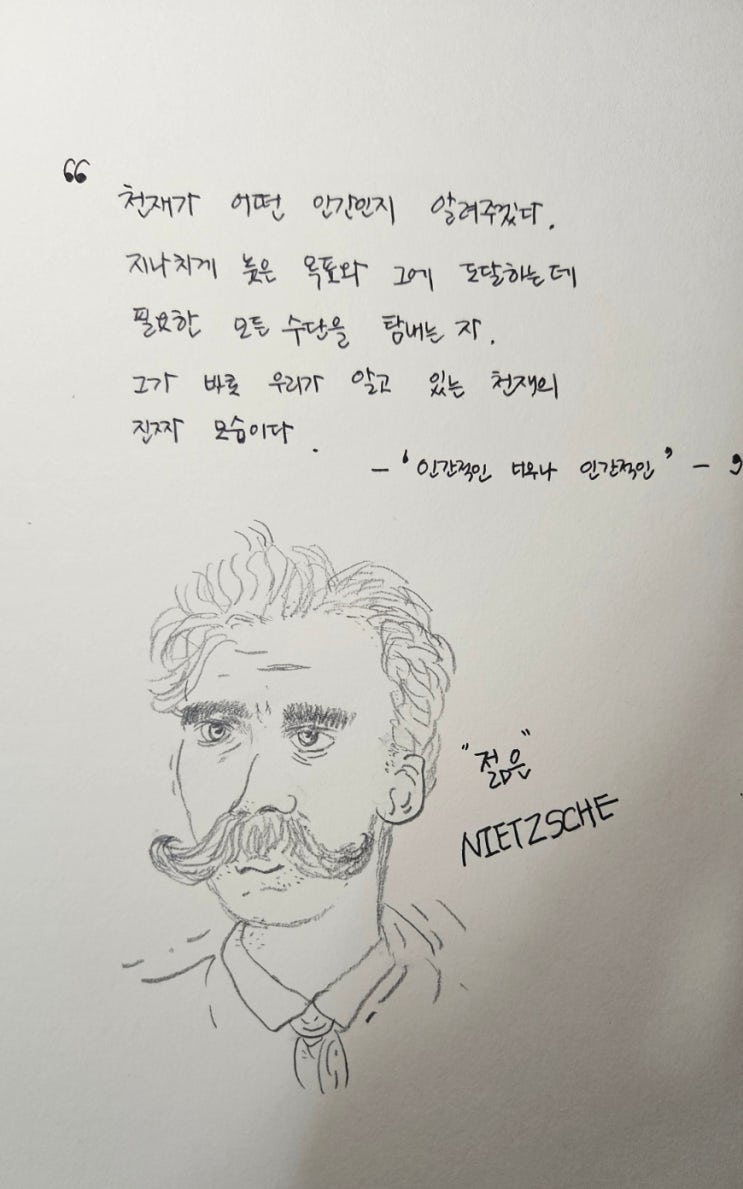 “
천재가 어떤 인간인지 알려주겠다.
지나치게 높은 목표와 그에 도달하는데
필요한 모든 수단을 탐내는 자.
그가 바로 우리가 알고 있는 천재의
진짜 모습이다.
- ‘인간적인 너무나 인간적인’ - ”
"젊은"
NIETZSCHE